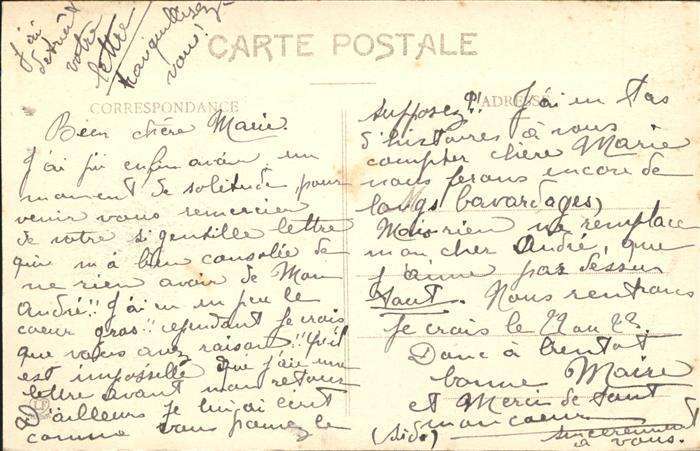 J'ai
détruit
votre
lettre
tranquillisez-
vous!
CARTE POSTALE
CORRESPONDANCE
Bien chère Marie.
J'ai pu enfin avoir un
moment de solitude pour
venir vous remercier
de votre si gentille lettre
qui m'a bien consolée de
ne rien avoir de Mon
André!! J'ai eu un peu le
coeur gros!! cependant je crois
que vous avez raison!! qu'il
est impossible que j'aie une
lettre avant mon retour
D'ailleurs je lui ai écrit
comme vous pouvez le
ADRESSE
supposez!! J'ai un tas
d'histoires à vous
compter chère Marie
nous ferons encore de
longs bavardages,
Mais rien ne remplace
mon cher André, que
j'aime par dessus
tout. Nous rentrons
je crois le 22 ou 23.
Donc à bientot
bonne Marie
et Merci de tout
mon coeur
sincerement
à vous.